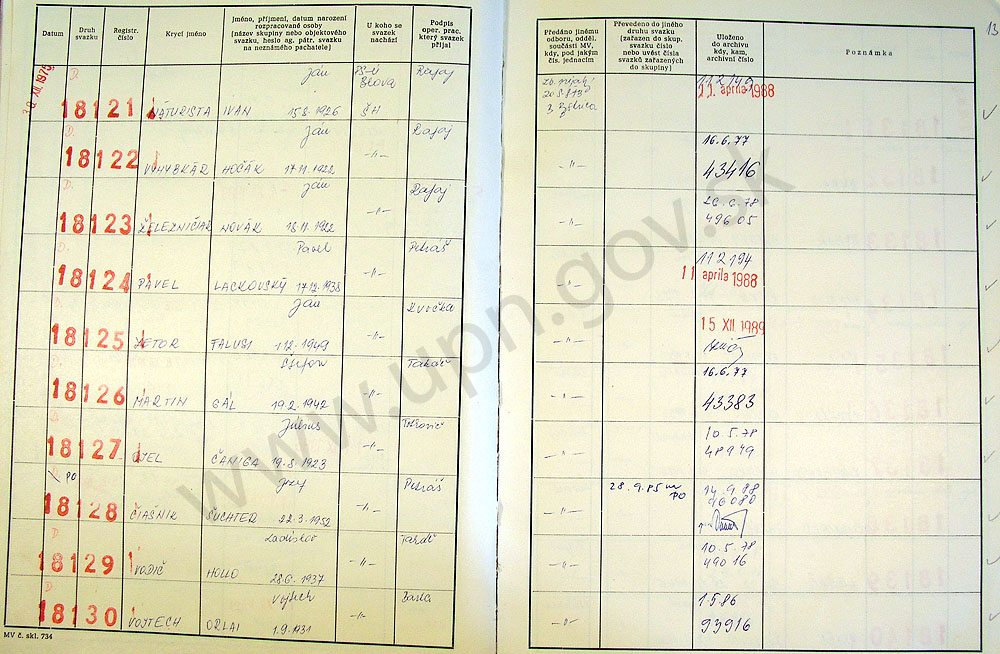 Datum
Druh svazku
Registr. číslo
Krycí jméno
Jméno, příjmení, datum narození
rozpracované osoby
(název skupiny nebo objektového
svazku, heslo ag. pátr. svazku
na neznámého pachatele)
U koho se svazek nachází
Podpis oper. prac. který svazek přijal
18121 NATURISTA IVAN Ján 15.8.1926 ŠH
18122 VÝHYBKÁR HOČÁK Ján 17.11.1922
18123 ŽELEZNIČIAR NOVÁK Ján 18.11.1922
18124 PAVEL LACKOVSKÝ Pavel 17.12.1938 Petráš
18125 FALUSI Ján 1.12.1949 Hvočka
18126 MARTIN GÁL 19.2.1942
18127 ČANIGA Július 19.8.1923
PO
18128 ČIAŠNIK ŠUCHTER Jozef 22.3.1952 Petráš
18129 VODIČ HOLLO Ladislav 28.6.1937
18130 VOJTECH ORLAI Vojtech 1.9.1931
MV č. skl. 734
Předáno jinému
odboru, odděl.
součásti MV,
kdy, pod jakým
čís. jednacím
Převedeno do jiného
druhu svazku
(zařazen do skup.
svazku číslo
nebo uvést čísla
svazků zařazených
do skupiny)
Uloženo
do archivu
kdy, kam,
archivní číslo
Poznámka
13
112149
11. aprila 1988
16.6.77
43416
26.6.78
49605
112194
11 aprila 1988
15 XII. 1989
16.6.77
43383
10.5.78
48949
28.9.85
PO
14.9.88
10.5.78
49016
1586
93916
www.upn.gov.sk